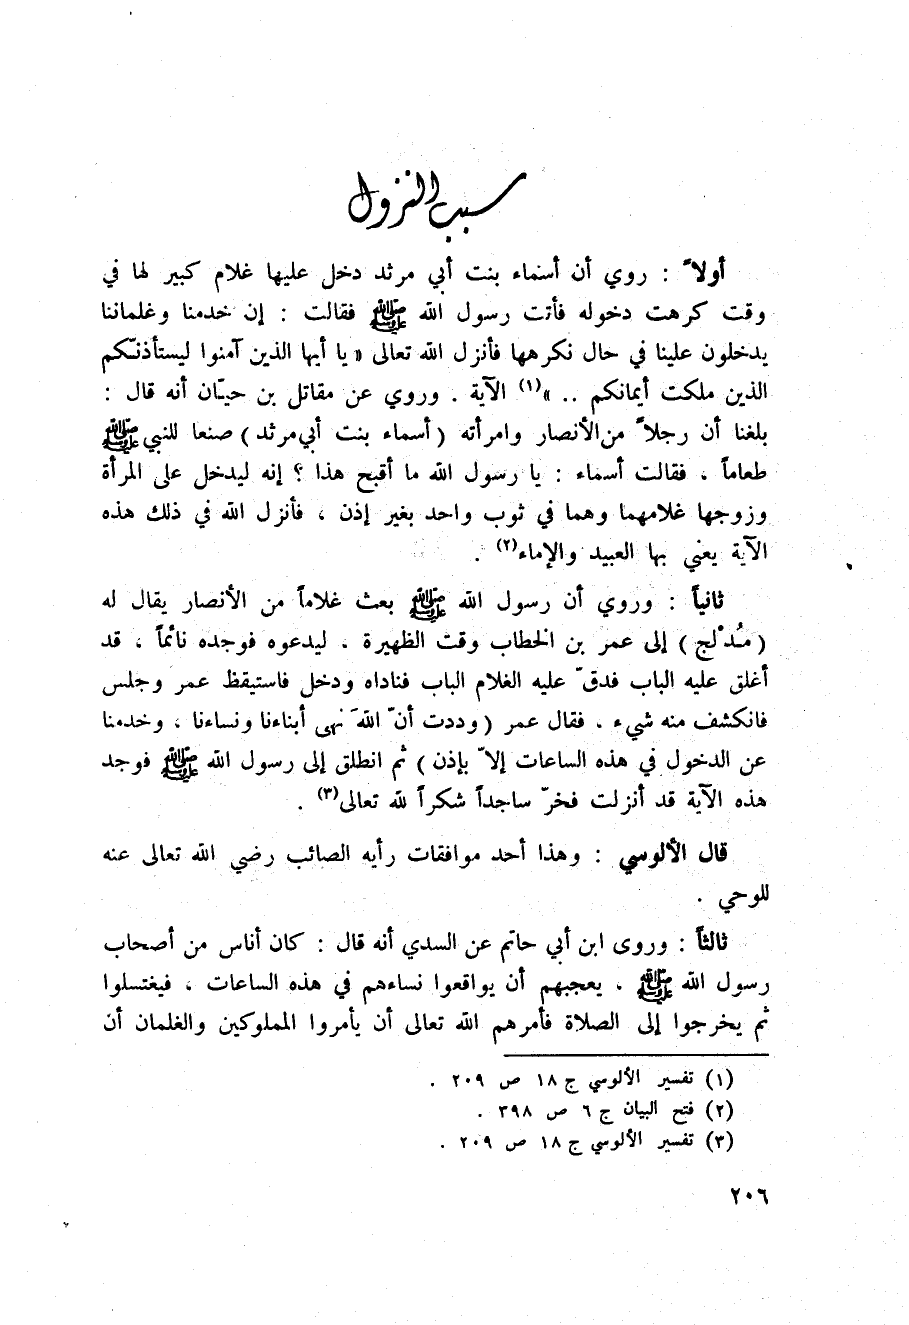 سبب النزول
أولاً : روي أن أسماء بنت أبي مرثد دخل عليها غلام كبير لها في
وقت كرهت دخوله فأتت رسول الله ﷺ فقالت : إن خدمنا وغلماننا
يدخلون علينا في حال نكرهها فأنزل الله تعالى « يا أيها الذين آمنوا ليستأذنكم
الذين ملكت أيمانكم .. »(١) الآية . وروي عن مقاتل بن حيّان أنه قال :
بلغنا أن رجلاً من الأنصار وامرأته (أسماء بنت أبي مرثد) صنعا للنبي ﷺ
طعاماً ، فقالت أسماء : يا رسول الله ما أقبح هذا ؟ إنه ليدخل على المرأة
وزوجها غلامهما وهما في ثوب واحد بغير إذن ، فأنزل الله في ذلك هذه
الآية يعني بها العبيد والإماء(٢) .
ثانياً : وروي أن رسول الله ﷺ بعث غلاماً من الأنصار يقال له
(مُدْلج) إلى عمر بن الخطاب وقت الظهيرة ، ليدعوه فوجده نائماً ، قد
أغلق عليه الباب فدقّ عليه الغلام الباب فناداه ودخل فاستيقظ عمر وجلس
فانكشف منه شيء ، فقال عمر (وددت أنّ اللهَ نهى أبناءنا ونساءنا ، وخدمنا
عن الدخول في هذه الساعات إلاّ بإذن) ثم انطلق إلى رسول الله ﷺ فوجد
هذه الآية قد أنزلت فخرّ ساجداً شكراً لله تعالى(٣) .
قال الألوسي : وهذا أحد موافقات رأيه الصائب رضي الله تعالى عنه
للوحي .
ثالثاً : وروى ابن أبي حاتم عن السدي أنه قال : كان أناس من أصحاب
رسول الله ﷺ ، يعجبهم أن يواقعوا نساءهم في هذه الساعات ، فيغتسلوا
ثم يخرجوا إلى الصلاة فأمرهم الله تعالى أن يأمروا المملوكين والغلمان أن
(١) تفسير الألوسي ج ١٨ ص ٢٠٩ .
(٢) فتح البيان ج ٦ ص ٣٩٨ .
(٣) تفسير الألوسي ج ١٨ ص ٢٠٩ .
٢٠٦